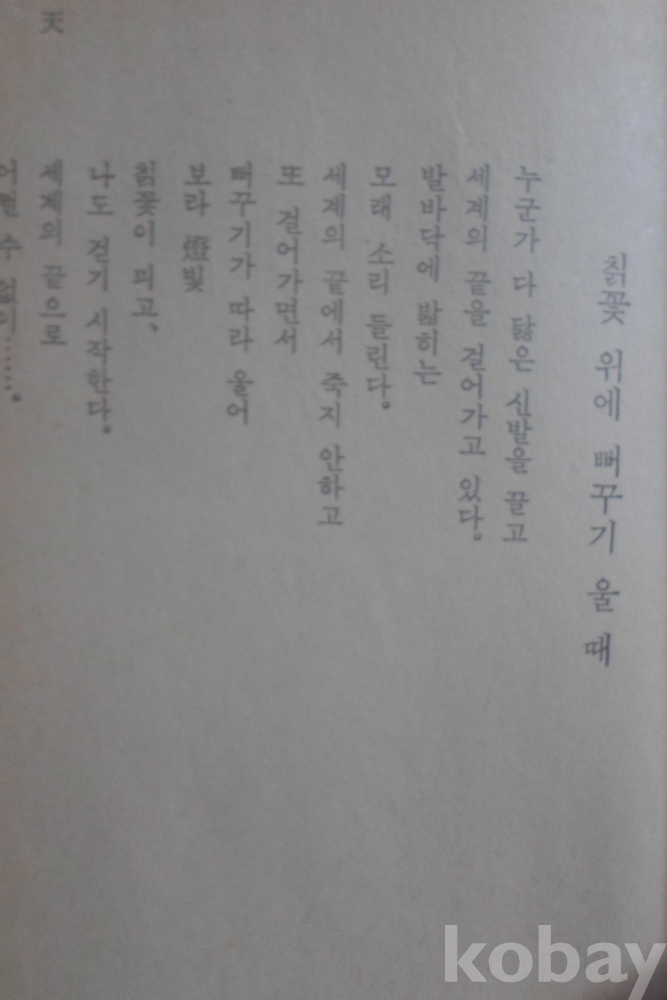 칡꽃 위에 뻐꾸기 울 때
누군가 다 닳은 신발을 끌고
세계의 끝을 걸어가고 있다.
발바닥에 밟히는
모래 소리 들린다.
세계의 끝에서 죽지 안하고
또 걸어가면서
뻐꾸기가 따라 울어
보라 燈빛
칡꽃이 피고,
나도 걷기 시작한다.
세계의 끝으로
어쩔 수 없이…….
天
kobay